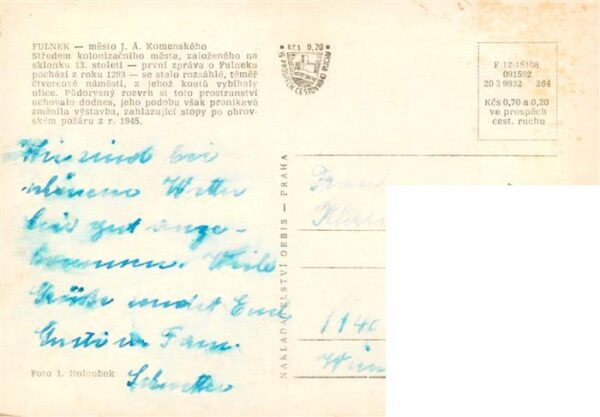 FULNEK — město J. A. Komenského
Středem kolonizačního města, založeného na
sklonku 13. století — první zpráva o Fulneku
pochází z roku 1293 — se stalo rozsáhlé, téměř
čtvercové náměstí, z jehož koutů vybíhaly
ulice. Půdorysný rozvrh si toto prostranství
uchovalo dodnes, jeho podobu však pronikavě
změnila výstavba, zahlazující stopy po obrov-
ském požáru z r. 1945.
Kčs 0,20
F 12-45106
091592
20 3 9932 264
Kčs 0,70 a 0,20
ve prospěch
cest. ruchu
NAKLADATELSTVÍ ORBIS — PRAHA
Wir sind bei
schönem Wetter
hier gut ange-
kommen. Viele
Grüße sendet Euch
Gusti u Fam.
1140
Wien
Foto I. Holoubek